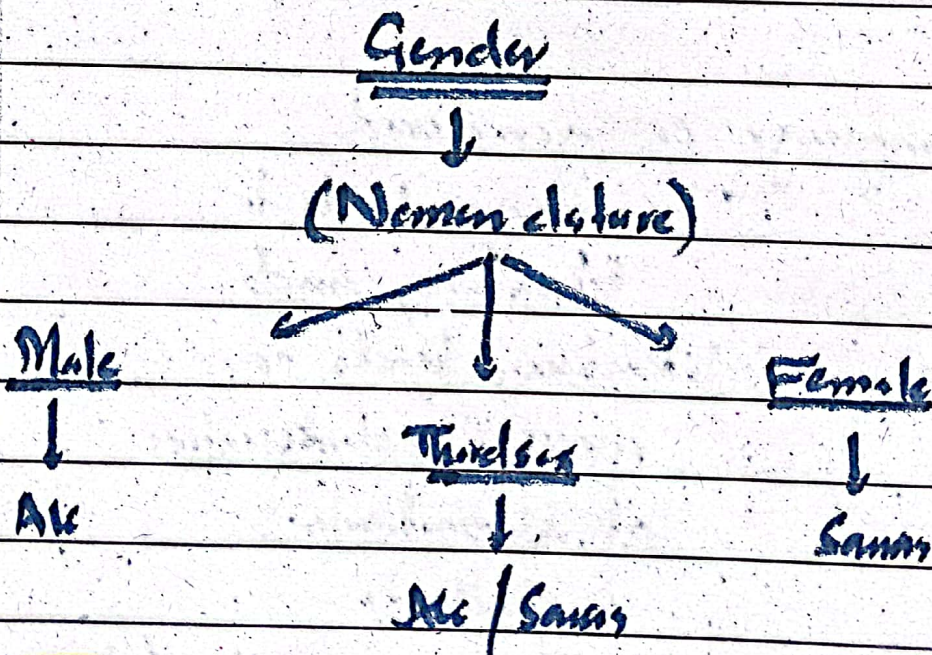 Gender
(Nomenclature)
Male
Female
Third sex
Ale
Sanas
Ale / Sanas